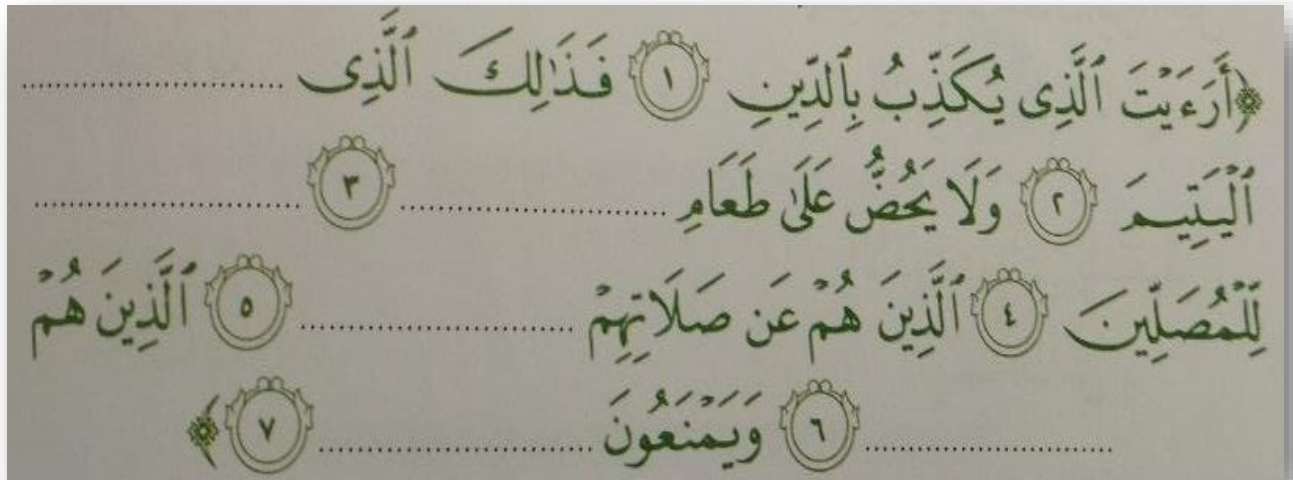 ﴿أَرَءَيْتَ ٱلَّذِى يُكَذِّبُ بِٱلدِّينِ ١ فَذَٰلِكَ ٱلَّذِى ..............................
ٱلْيَتِيمَ ٢ وَلَا يَحُضُّ عَلَىٰ طَعَامِ .............................. ٣ ..............................
لِّلْمُصَلِّينَ ٤ ٱلَّذِينَ هُمْ عَن صَلَاتِهِمْ .............................. ٥ ٱلَّذِينَ هُمْ
.............................. ٦ وَيَمْنَعُونَ .............................. ٧﴾